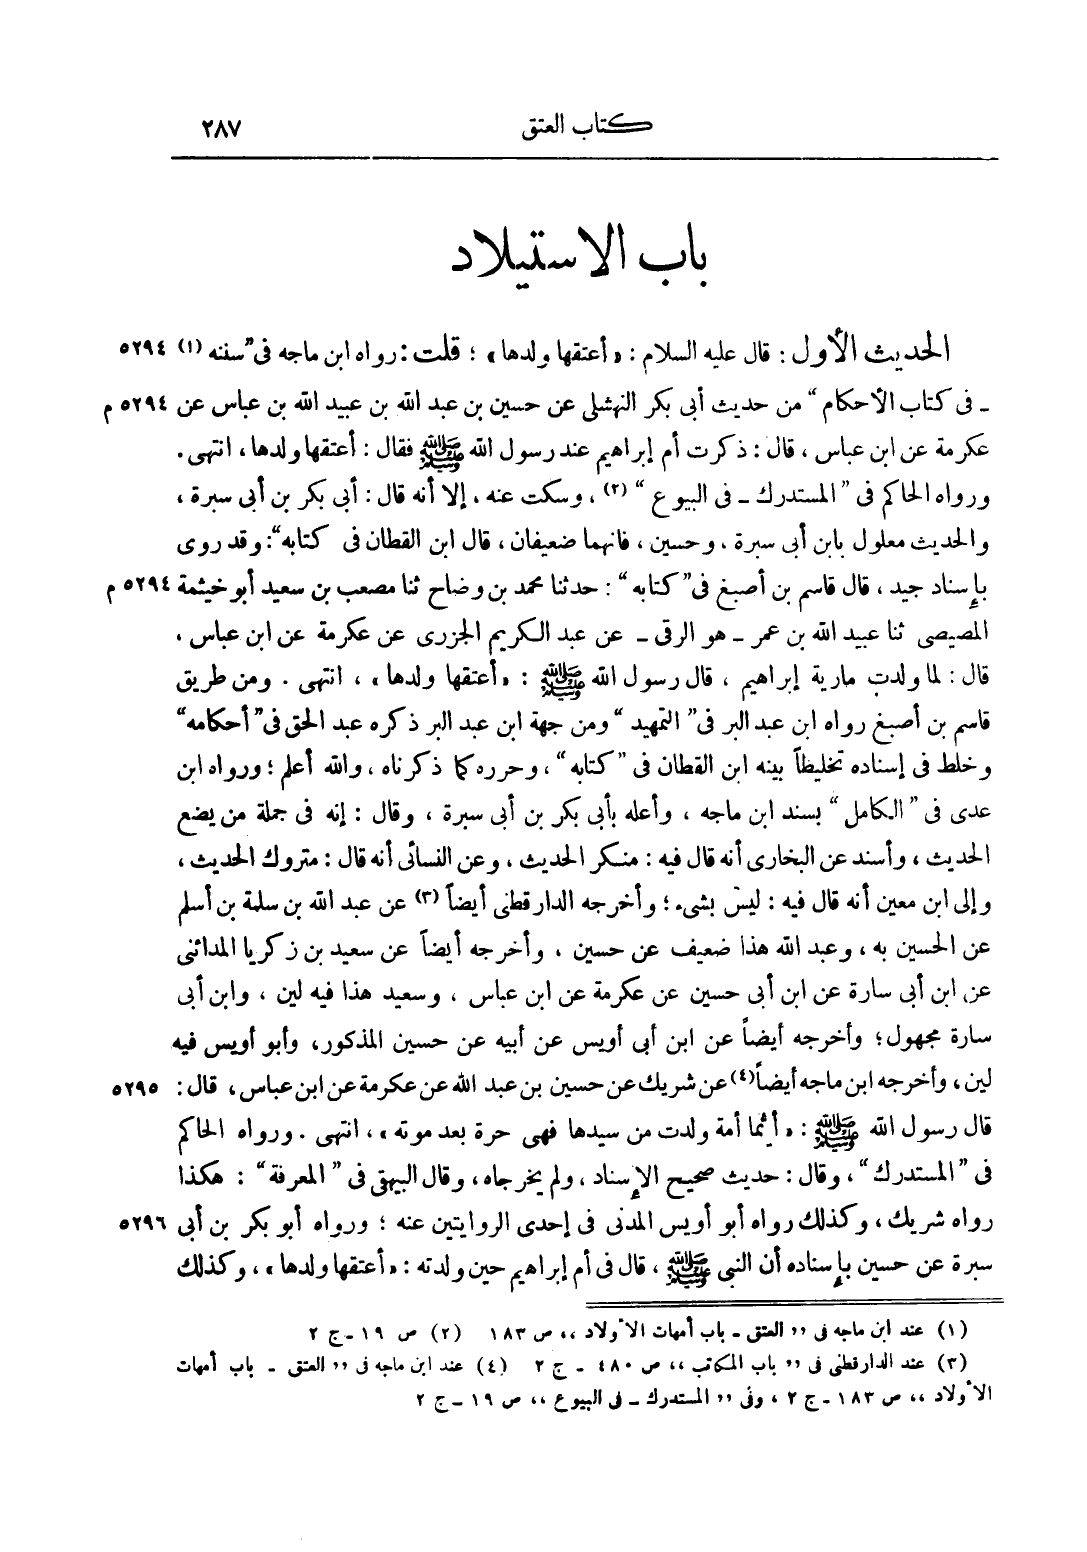 ٢٨٧ كتاب العتق
باب الاستيلاد
الحديث الأول : قال عليه السلام : «أعتقها ولدها» ؛ قلت : رواه ابن ماجه فى "سننه (١) ٥٢٩٤
ـ فى كتاب الأحكام" من حديث أبى بكر النهشلى عن حسين بن عبد الله بن عبيد الله بن عباس عن ٥٢٩٤ م
عكرمة عن ابن عباس ، قال : ذكرت أم إبراهيم عند رسول الله ﷺ فقال : أعتقها ولدها ، انتهى .
ورواه الحاكم فى "المستدرك ـ فى البيوع" (٢) ، وسكت عنه ، إلا أنه قال : أبى بكر بن أبى سبرة ،
والحديث معلول بابن أبى سبرة ، وحسين ، فانهما ضعيفان ، قال ابن القطان فى كتابه" : وقد روى
بإسناد جيد ، قال قاسم بن أصبغ فى "كتابه" : حدثنا محمد بن وضاح ثنا مصعب بن سعيد أبو خيثمة ٥٢٩٤ م
المصيصى ثنا عبيد الله بن عمر ـ هو الرقى ـ عن عبد الكريم الجزرى عن عكرمة عن ابن عباس ،
قال : لما ولدت مارية إبراهيم ، قال رسول الله ﷺ : «أعتقها ولدها» ، انتهى . ومن طريق
قاسم بن أصبغ رواه ابن عبد البر فى "التمهيد" ومن جهة ابن عبد البر ذكره عبد الحق فى "أحكامه"
وخلط فى إسناده تخليطاً بينه ابن القطان فى "كتابه" ، وحرره كما ذكرناه ، والله أعلم ؛ ورواه ابن
عدى فى "الكامل" بسند ابن ماجه ، وأعله بأبى بكر بن أبى سبرة ، وقال : إنه فى جملة من يضع
الحديث ، وأسند عن البخارى أنه قال فيه : منكر الحديث ، وعن النسائى أنه قال : متروك الحديث ،
وإلى ابن معين أنه قال فيه : ليس بشىء ؛ وأخرجه الدارقطنى أيضاً (٣) عن عبد الله بن سلمة بن أسلم
عن الحسين به ، وعبد الله هذا ضعيف عن حسين ، وأخرجه أيضاً عن سعيد بن زكريا المدائنى
عن ابن أبى سارة عن ابن أبى حسين عن عكرمة عن ابن عباس ، وسعيد هذا فيه لين ، وابن أبى
سارة مجهول ؛ وأخرجه أيضاً عن ابن أبى أويس عن أبيه عن حسين المذكور ، وأبو أويس فيه
لين ، وأخرجه ابن ماجه أيضاً (٤) عن شريك عن حسين بن عبد الله عن عكرمة عن ابن عباس ، قال : ٥٢٩٥
قال رسول الله ﷺ : «أيما أمة ولدت من سيدها فهى حرة بعد موته» ، انتهى . ورواه الحاكم
فى "المستدرك" ، وقال : حديث صحيح الإسناد ، ولم يخرجاه ، وقال البيهقى فى "المعرفة" : هكذا
رواه شريك ، وكذلك رواه أبو أويس المدنى فى إحدى الروايتين عنه ؛ ورواه أبو بكر بن أبى ٥٢٩٦
سبرة عن حسين بإسناده أن النبى ﷺ ، قال فى أم إبراهيم حين ولدته : «أعتقها ولدها» ، وكذلك
(١) عند ابن ماجه فى ,, العتق ـ باب أمهات الأولاد ,, ص ١٨٣ (٢) ص ١٩ ـ ج ٢
(٣) عند الدارقطنى فى ,, باب المكاتب ,, ص ٤٨٠ ـ ج ٢ (٤) عند ابن ماجه فى ,, العتق ـ باب أمهات
الأولاد ,, ص ١٨٣ ـ ج ٢ ، وفى ,, المستدرك ـ فى البيوع ,, ص ١٩ ـ ج ٢